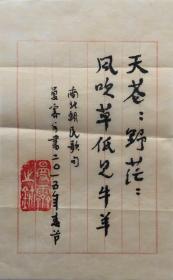 天苍:野茫:
风吹草低见牛羊
南北朝民歌句
曼霖书二〇一五年春节